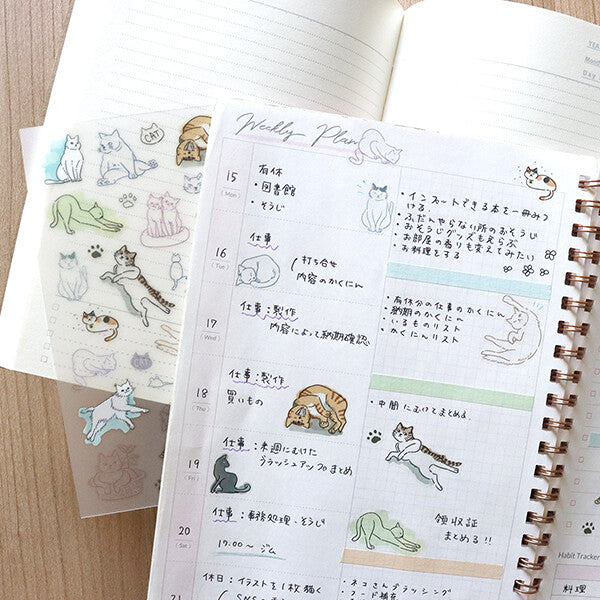 YEA
Mon
Day
CAT
Weekly Plan
15
(Mon)
有休
・図書館
・そうじ
・インプットできる本を一冊みつける。
・ふだんやらない所のおそうじ
・おそうじグッズもえらぶ
・お部屋の香りも変えてみたい
・お料理をする
16
(Tue)
仕事
打ち合せ
内容のかくにん
17
(Wed)
仕事:製作
内容によって納期確認
・有休分の仕事のかくにん
・納期のかくにん
・いるものリスト
・かくにんリスト
18
(Thu)
仕事:製作
買いもの
・中間にむけてまとめる
19
(Fri)
仕事:来週にむけた
ブラッシュアップのまとめ
20
(Sat)
仕事:事務処理、そうじ
17:00〜 ジム
領収証
まとめる!!
21
休日:イラストを1枚描く
・ネコさんブラッシング
・フード補充
Habit Tracker
料理